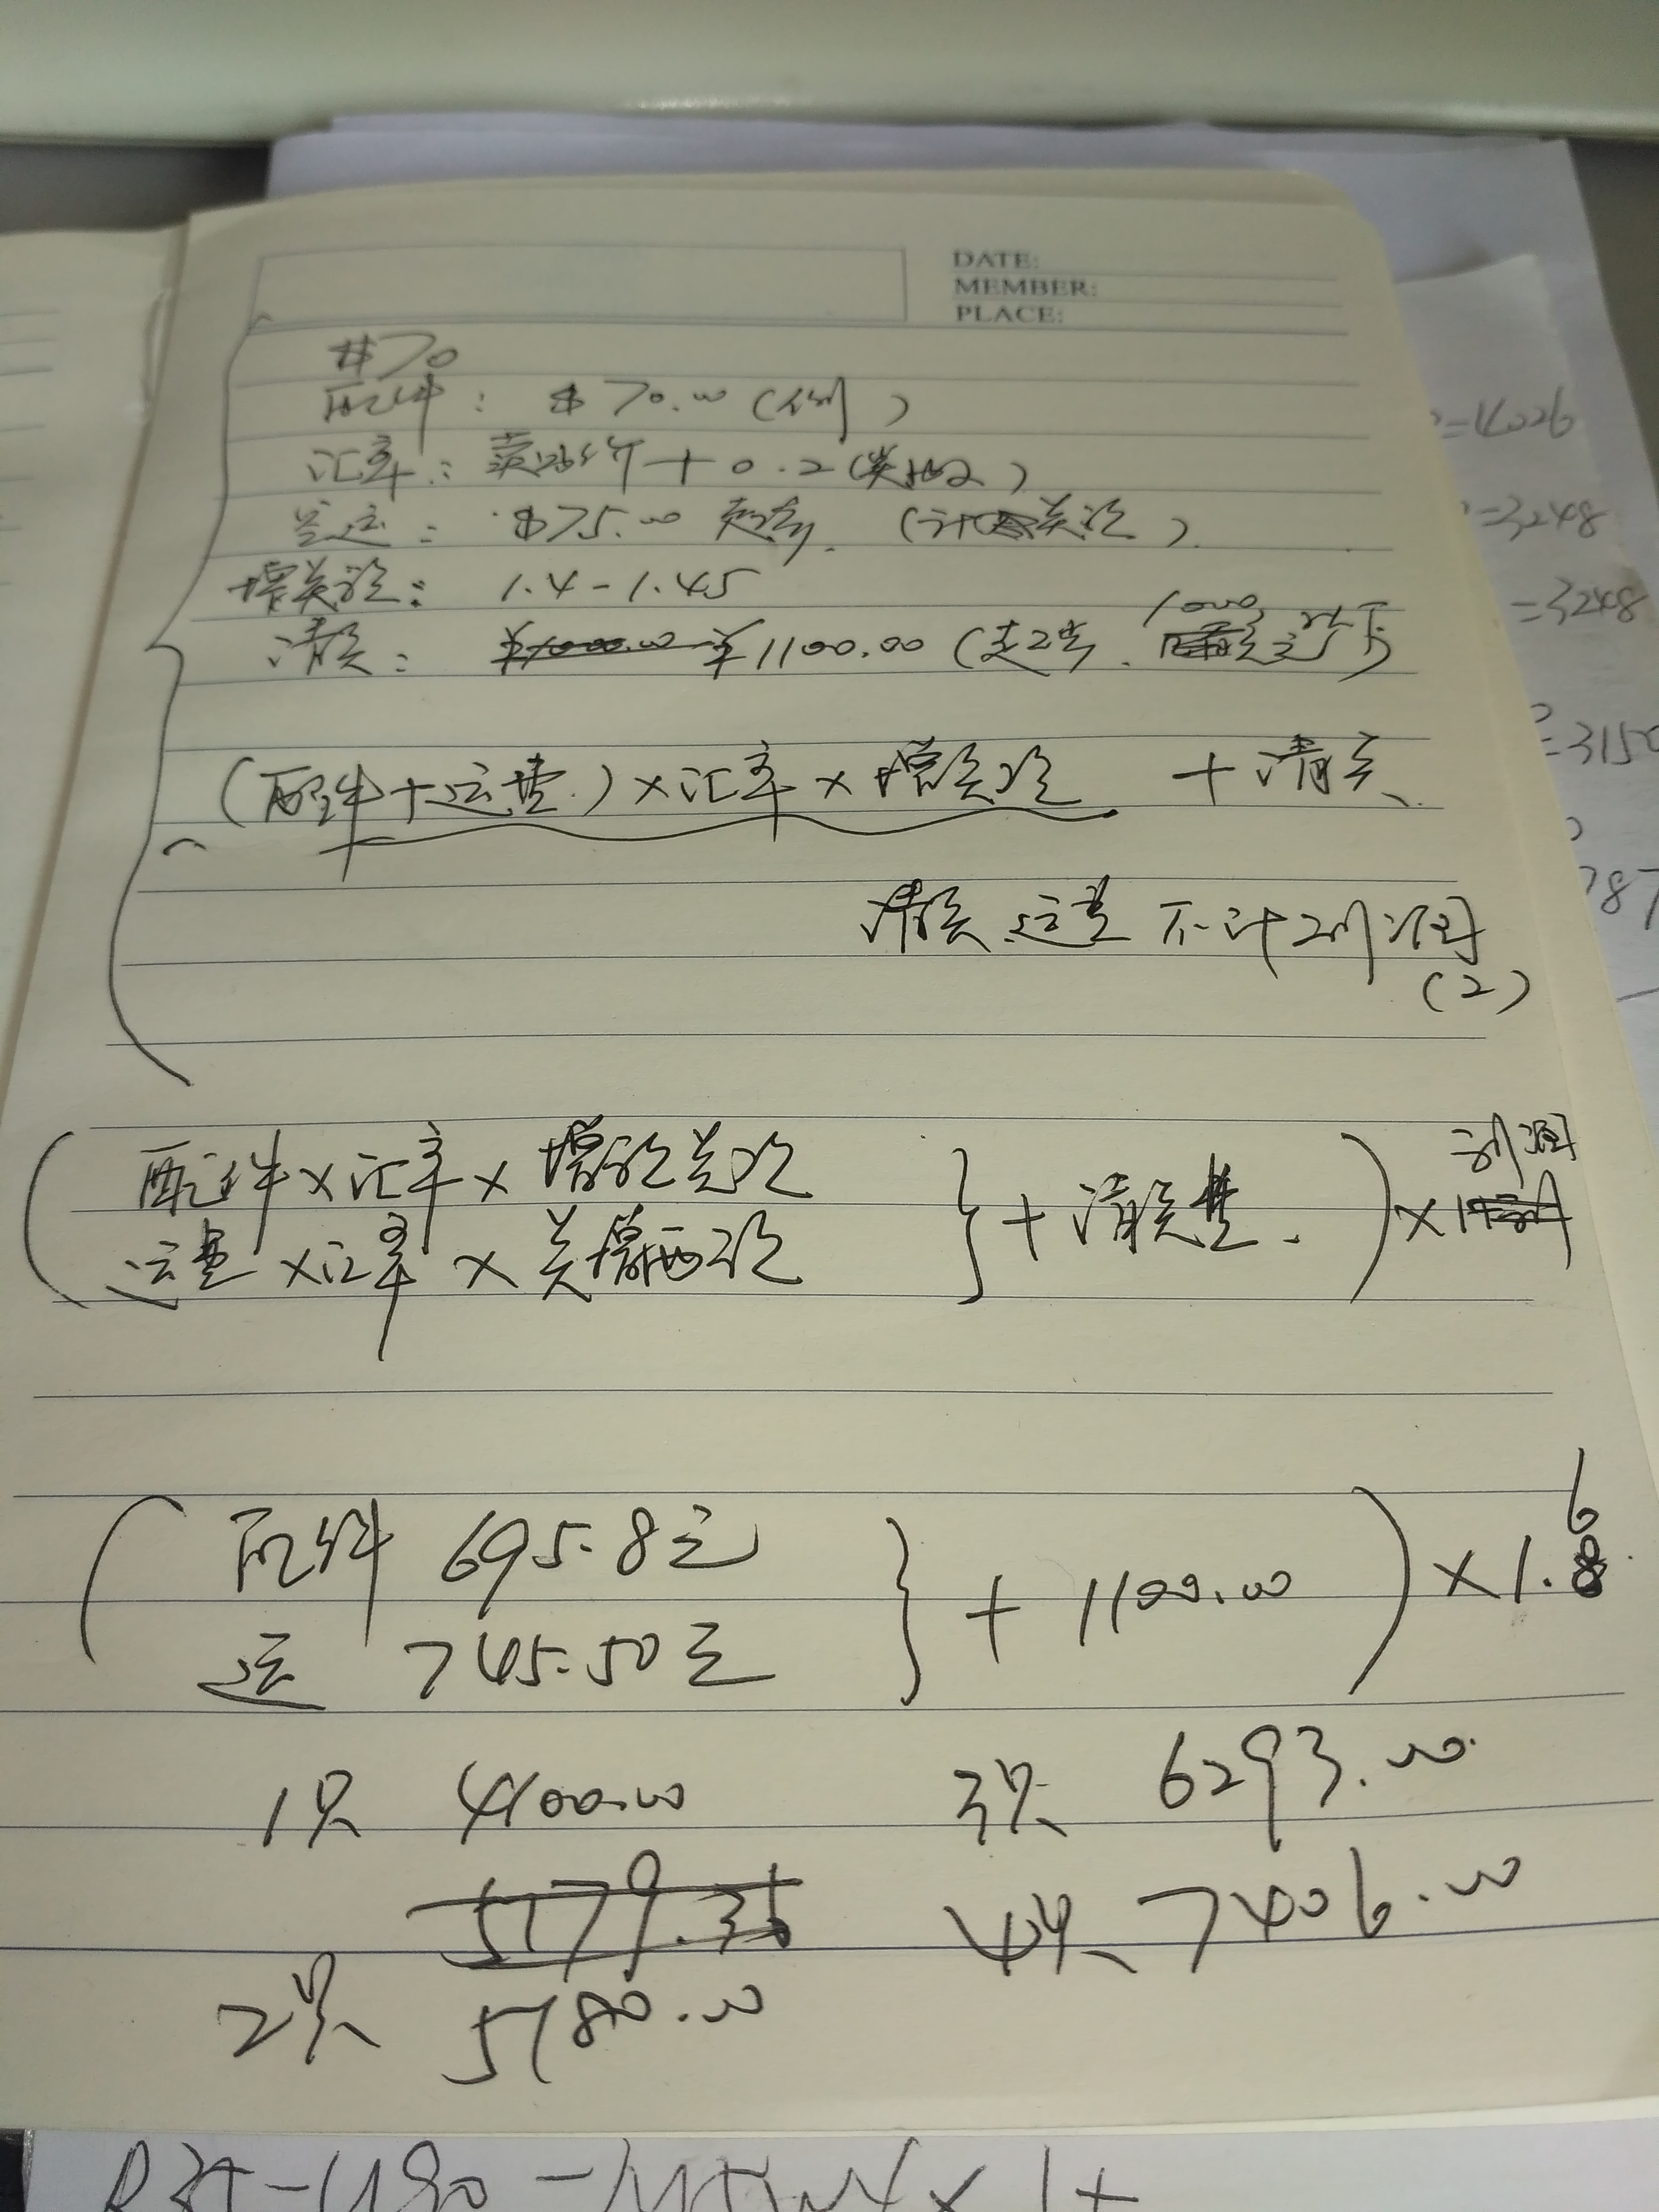 DATE:
MEMBER:
PLACE:
#70
配件: $70.00 (例)
汇率: 卖出价+0.2(类似2)
空运: $75.00 起步. (计关税)
增关税: 1.4-1.45
清关: ¥1000.00 ¥1100.00 (走2步. 1000以下)
(配件+运费)×汇率×增关税 +清关
清关、运费 不计利润
(2)
配件×汇率×增税关税
运费×汇率×关增两税
+清关费.
×利润
配件 695.8元
运 745.50元
+1100.00
×1.6
1只 4100.00
3只 6293.00
5179.35
4只 7406.00
2只 5180.00
=4026
=3248
=3248
=3150
787